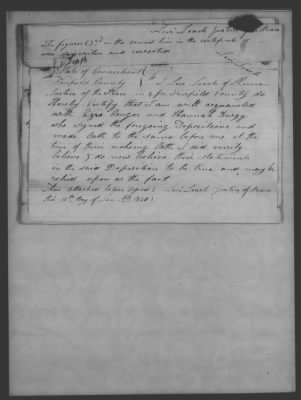 Levi Leach Justice of Peace
The figures 3rd in the second line in the certificate
was rewritten and corrected
Levi Leach
State of Connecticut }
Fairfield County } I Levi Leach of
Justice of the Peace in & for Fairfield County do
Hereby Certify that I am well acquainted
with Ezra and Hannah
who signed the foregoing Depositions and
made Oath to the same before me at the
time of their making Oath I did verily
believe & do now believe their statements
in the said Deposition to be true and may be
relied upon as the fact
Levi Leach Justice of Peace
this Day of Jany 1840